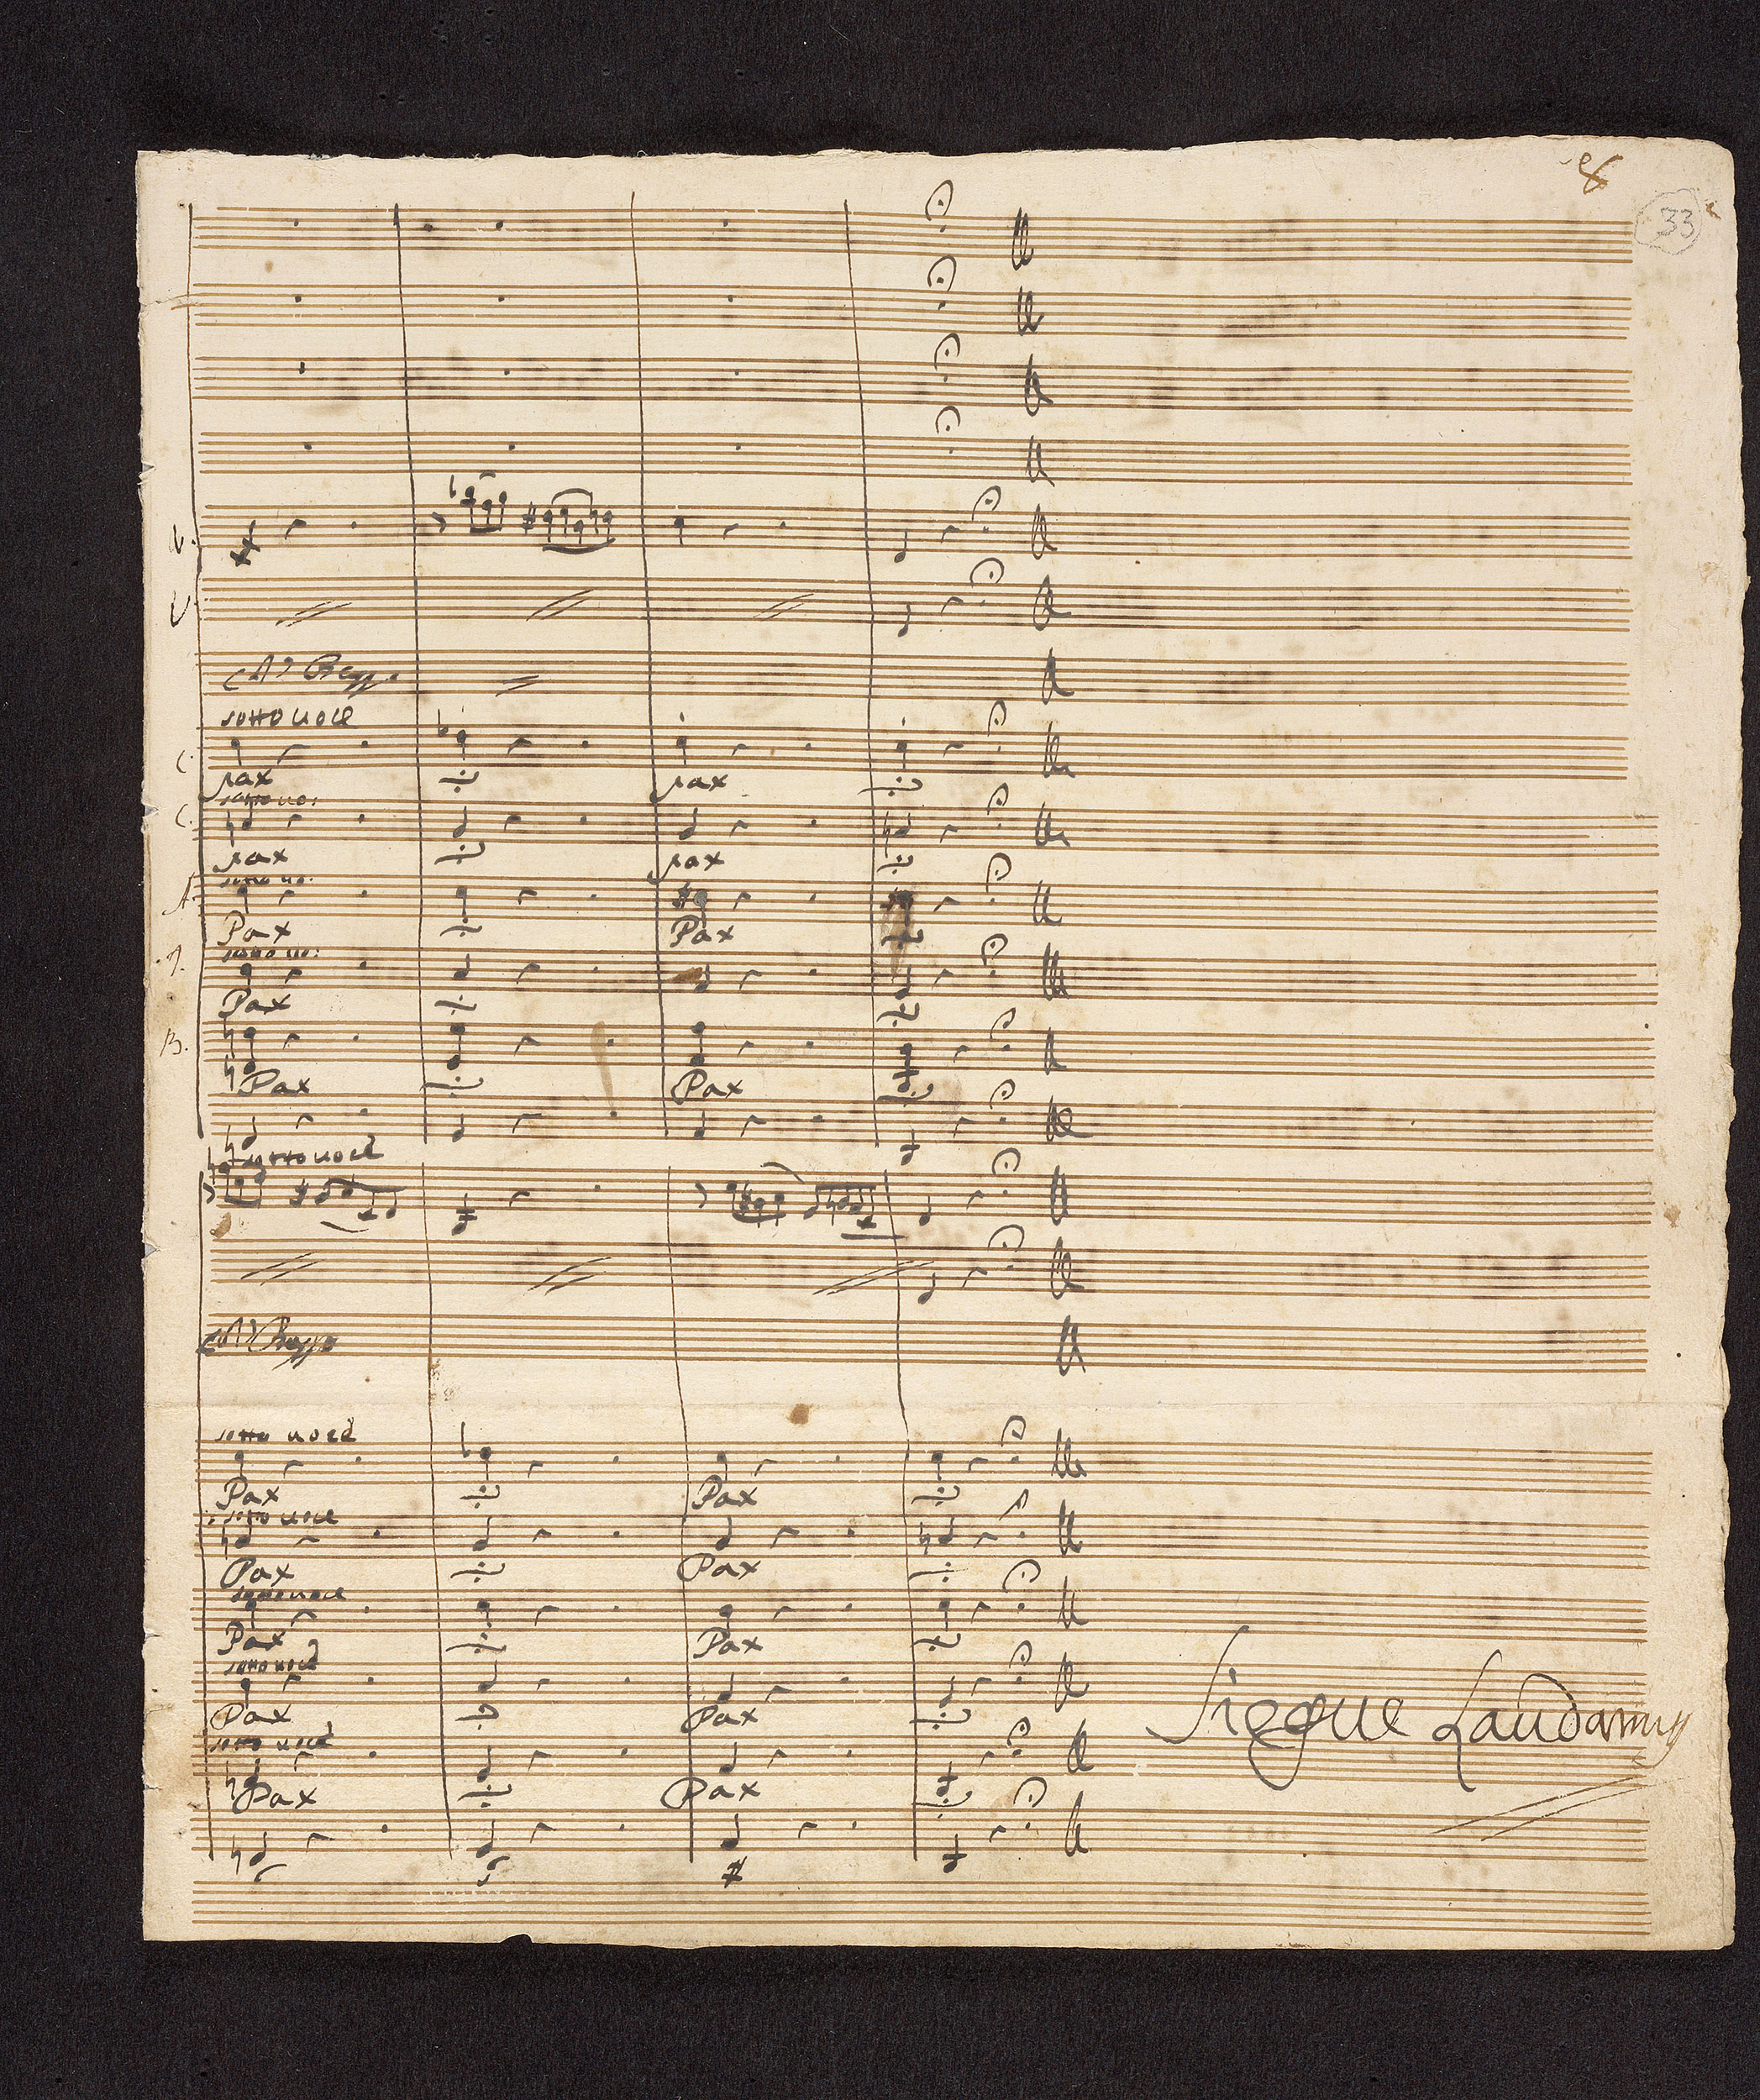 8
33
V.
V
Col Basso
sotto voce
C.
pax pax
sotto vo:
C.
pax pax
sotto vo:
A.
Pax Pax
sotto vo:
T.
Pax Pax
B.
Pax Pax
sotto voce
Col Basso
sotto voce
Pax Pax
sotto voce
Pax Pax
sotto voce
Pax Pax
sotto voce
Pax Pax
Siegue Laudamus
sotto voce
Pax Pax